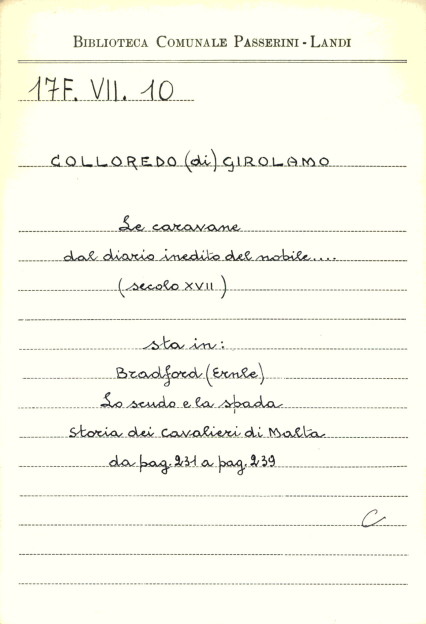 BIBLIOTECA COMUNALE PASSERINI - LANDI
17F. VII. 10
COLLOREDO (di) GIROLAMO
Le caravane
dal diario inedito del nobile....
(secolo XVII)
sta in:
Bradford (Ernle)
Lo scudo e la spada
Storia dei Cavalieri di Malta
da pag. 231 a pag. 239
C